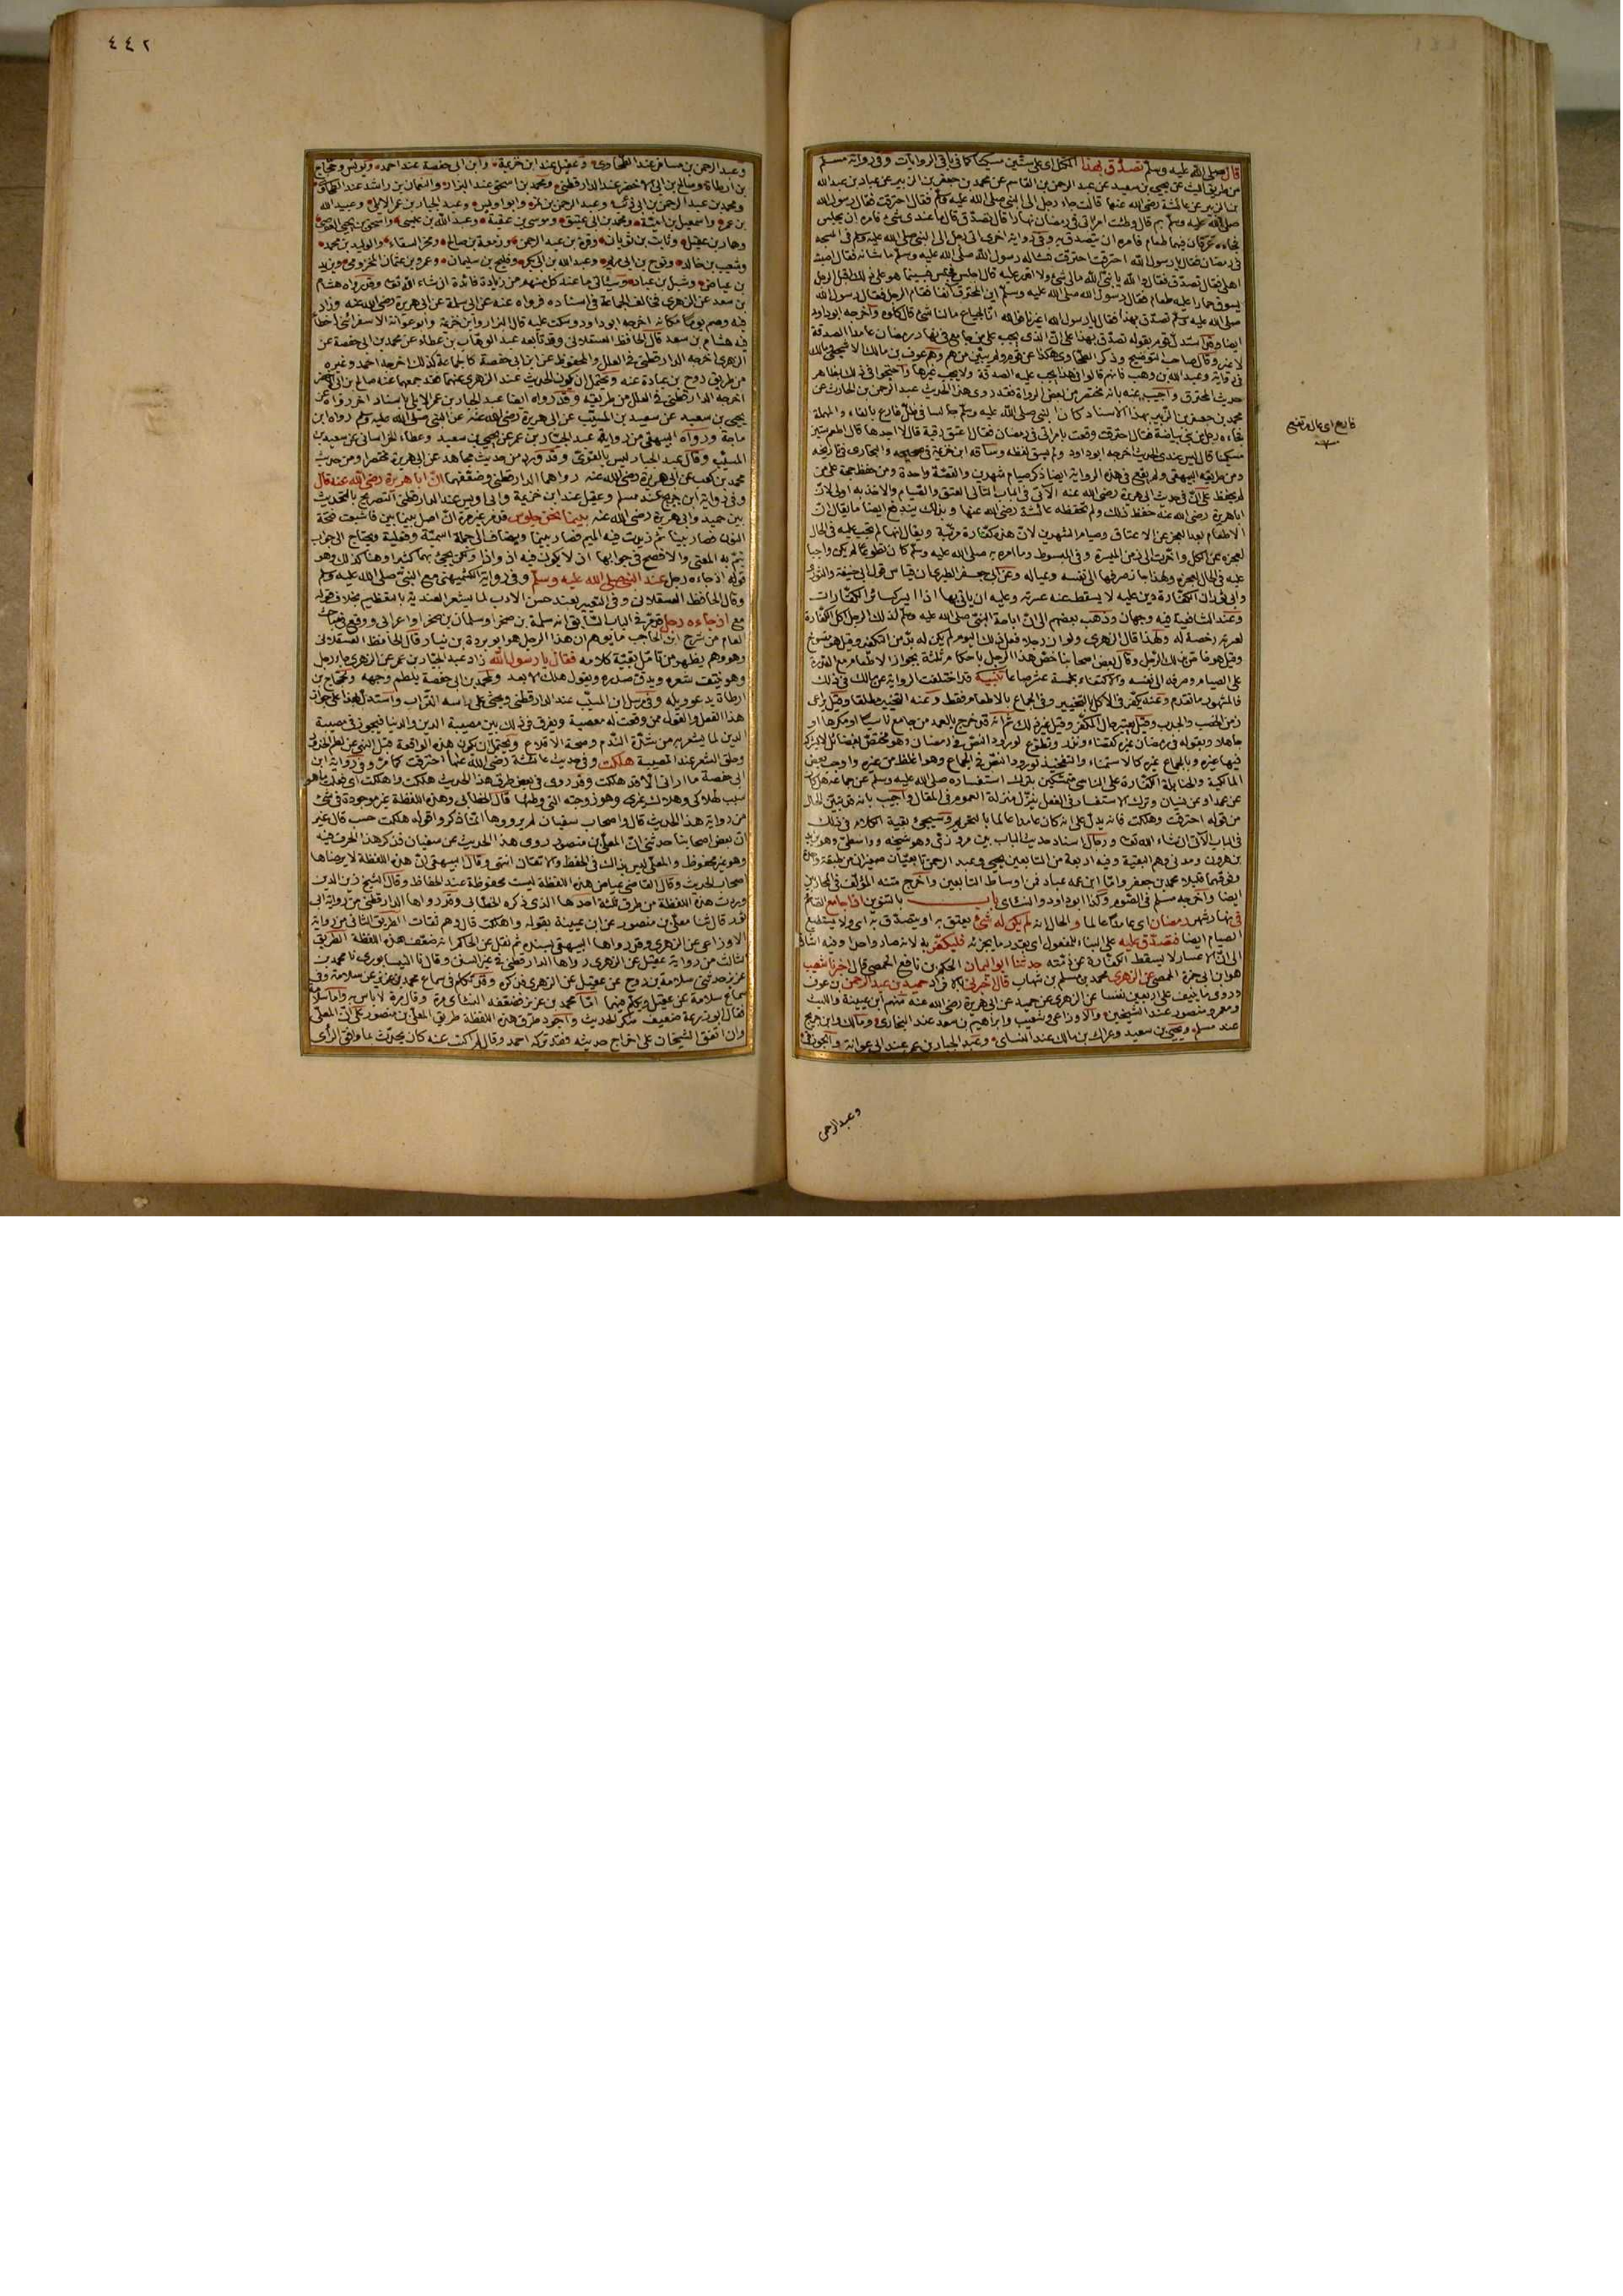 قال صلى الله عليه وسلم تصدق بهذا المكتل اى على ستين مسكينا كما فى باقى الروايات وفى رواية مسلم
من طريق الليث عن يحيى بن سعيد عن عبد الرحمن بن القاسم عن محمد بن جعفر بن الزبير عن عباد بن عبد الله
بن الزبير عن عائشة رضى الله عنها قالت جاء رجل الى النبى صلى الله عليه وسلم فقال احترقت فقال رسول الله
صلى الله عليه وسلم بم قال وطئت امرأتى فى رمضان نهارا قال تصدق قال ما عندى شئ فامره ان يجلس
فجاءه عرقان فيهما طعام فامره ان يتصدق به وفى رواية اخرى اتى رجل الى النبى صلى الله عليه وسلم فى المسجد
فى رمضان فقال يا رسول الله احترقت احترقت فسأله رسول الله صلى الله عليه وسلم ما شانه فقال اصبت
اهلى فقال تصدق فقال والله يا نبى الله مالى شئ ولا اقدر عليه قال اجلس فجلس فبينما هو على ذلك اقبل رجل
يسوق حمارا عليه طعام فقال رسول الله صلى الله عليه وسلم اين المحترق آنفا فقام الرجل فقال رسول الله
صلى الله عليه وسلم تصدق بهذا فقال يا رسول الله اغيرنا فوالله انا لجياع مالنا شئ قال كلوه واخرجه ابو داود
ايضا وقد استدل قوم بقوله تصدق بهذا على ان الذى يجب على من جامع فى نهار رمضان عامدا الصدقة
لا غير وقال صاحب التوضيح وذكر الطحاوى هكذا عن قوم ولم يبين من هم وهم عوف بن مالك الاشجعى ومالك
فى رواية وعبد الله بن وهب فانهم قالوا فى هذا يجب عليه الصدقة ولا يجب غيرها واحتجوا فى ذلك بظاهر
حديث المحترق واجيب عنه بانه مختصر من بعض الرواة فقد روى هذا الحديث عبد الرحمن بن الحارث عن
محمد بن جعفر بن الزبير بهذا الاسناد كان النبى صلى الله عليه وسلم جالسا فى ظل فارع بالفاء والمهملة
فجاءه رجل من بنى بياضة فقال احترقت وقعت بامرأتى فى رمضان فقال اعتق رقبة قال لا اجدها قال اطعم ستين
مسكينا قال ليس عندى الحديث اخرجه ابو داود ولم يسق لفظه وساقه ابن خزيمة فى صحيحه والبخارى فى تاريخه
ومن طريقه البيهقى ولم يقع فى هذه الرواية ايضا ذكر صيام شهرين والقصة واحدة ومن حفظ حجة على من
لم يحفظ على ان فى حديث ابى هريرة رضى الله عنه الآتى فى الباب التالى العتق والصيام والاخذ به اولى لان
ابا هريرة رضى الله عنه حفظ ذلك ولم تحفظه عائشة رضى الله عنها وبذلك يندفع ايضا ما يقال ان
عليه فى الحال لعجزه ولهذا جاز صرفها الى نفسه وعياله وعن ابى جعفر الطبرى ان قياس قول ابى حنيفة والثورى
وابى ثور ان الكفارة دين عليه لا يسقط عنه عسرته وعليه ان يأتى بها اذا ايسر كسائر الكفارات
وعند الشافعية فيه وجهان وذهب بعضهم الى ان اباحة النبى صلى الله عليه وسلم لذلك الرجل اكل الكفارة
لعسرته رخصة له ولهذا قال الزهرى ولو ان رجلا فعل ذلك اليوم لم يكن له بد من التكفير وقيل هو منسوخ
وقيل هو خاص بذلك الرجل وقال بعض اصحابنا خص هذا الرجل باحكام ثلثة بجواز الاطعام مع القدرة
على الصيام وصرفه الى نفسه والاكتفاء بخمسة عشر صاعا تنبيه قد اختلفت الرواية عن مالك فى ذلك
فالمشهور ما تقدم وعنه يكفر فى الاكل بالتخيير وفى الجماع بالاطعام فقط وعنه التخيير مطلقا وقيل يراعى
زمن الخصب والجدب وقيل يعتبر حال المكفر وقيل غير ذلك ثم انه قد خرج بالعمد من جامع ناسيا او مكرها او
جاهلا وبقوله فى رمضان غيره كقضاء ونذر وتطوع لورود النص فى رمضان وهو مختص بفضائل لا يشركه
فيها غيره وبالجماع غيره كالاستمناء والتفخيذ لورود النص فى الجماع وهو اغلظ من غيره واوجب بعض
المالكية والحنابلة الكفارة على الناسى متمسكين بترك استفساره صلى الله عليه وسلم عن جماعه هل كان
عن عمد او عن نسيان وترك الاستفسار فى الفعل ينزل منزلة العموم فى المقال واجيب بانه قد تبين الحال
من قوله احترقت وهلكت فانه يدل على انه كان عامدا عالما بالتحريم وسيجئ بقية الكلام فى ذلك
فى الباب الآتى ان شاء الله تعالى ورجال اسناد حديث الباب بين مروزى وهو شيخه وواسطى وهو يزيد
بن هرون ومدنى وهم البقية وفيه اربعة من التابعين يحيى وعبد الرحمن تابعيان صغيران من طبقة واحدة
وفوقهما قليلا محمد بن جعفر واما ابن عمه عباد فمن اوساط التابعين واخرج متنه المؤلف فى المحاربين
ايضا واخرجه مسلم فى الصوم وكذا ابو داود والنسائى باب بالتنوين اذا جامع الصائم
فى نهار شهر رمضان اى عامدا عالما والحال انه لم يكن له شئ يعتق به او يتصدق به اى ولا يستطيع
الصيام ايضا فتصدق عليه على البناء للمفعول اى بقدر ما يجزئه فليكفر به لانه صار واجدا وفيه اشارة
الى ان الاعسار لا يسقط الكفارة عن ذمته حدثنا ابو اليمان الحكم بن نافع الحمصى قال اخبرنا شعيب
هو ابن ابى حمزة الحمصى عن الزهرى محمد بن مسلم بن شهاب قال اخبرنى بالافراد حميد بن عبد الرحمن بن عوف
وروى ما ينيف على اربعين نفسا عن الزهرى عن حميد عن ابى هريرة رضى الله عنه منهم ابن عيينة والليث
ومعمر ومنصور عند الشيخين والاوزاعى وشعيب وابراهيم بن سعد عند البخارى ومالك وابن جريج
عند مسلم ويحيى بن سعيد وعراك بن مالك عند النسائى وعبد الجبار بن عمر عند ابى عوانة والجوزقى
وعبد الرحمن
فارع اى عال مرتفع
٤٤٢
وعبد الرحمن بن مسافر عند الطحاوى وعقيل عند ابن خزيمة وابن ابى حفصة عند احمد ويونس وحجاج
بن ارطاة وصالح بن ابى الاخضر عند الدارقطنى ومحمد بن اسحق عند البزار والنعمان بن راشد عند الطحاوى
ومحمد بن عبد الرحمن بن ابى ذئب وعبد الرحمن بن نمر وابو اويس وعبد الجبار بن عمر الايلى وعبيد الله
بن عمر واسمعيل بن امية ومحمد بن ابى عتيق وموسى بن عقبة وعبد الله بن عيسى واسحق بن يحيى العوصى
وهبار بن عقيل وثابت بن ثوبان وقرة بن عبد الرحمن وزمعة بن صالح وبحر السقاء والوليد بن محمد
وشعيب بن خالد ونوح بن ابى مريم وعبد الله بن ابى بكر وفليح بن سليمان وعمرو بن عثمان المخزومى ويزيد
بن عياض وشبل بن عباد وسيأتى ما عند كل منهم من زيادة فائدة ان شاء الله تعالى وقد رواه هشام
بن سعد عن الزهرى فخالف الجماعة فى اسناده فرواه عنه عن ابى سلمة عن ابى هريرة رضى الله عنه وزاد
فيه وصم يوما مكانه اخرجه ابو داود وسكت عليه قال البزار وابن خزيمة وابو عوانة الاسفرائنى اخطأ
فيه هشام بن سعد قال الحافظ العسقلانى وقد تابعه عبد الوهاب بن عطاء عن محمد بن ابى حفصة عن
الزهرى اخرجه الدارقطنى فى العلل والمحفوظ عن ابن ابى حفصة كالجماعة كذلك اخرجه احمد وغيره
من طريق روح بن عبادة عنه ويحتمل ان يكون الحديث عند الزهرى عنهما فقد جمعهما عنه صالح بن ابى الاخضر
اخرجه الدارقطنى فى العلل من طريقه وقد رواه ايضا عبد الجبار بن عمر الايلى باسناد اخر رواه عن
يحيى بن سعيد عن سعيد بن المسيب عن ابى هريرة رضى الله عنه عن النبى صلى الله عليه وسلم رواه ابن
ماجة ورواه البيهقى من رواية عبد الجبار بن عمر عن يحيى بن سعيد وعطاء الخراسانى عن سعيد بن
المسيب وقال عبد الجبار ليس بالقوى وقد ورد من حديث مجاهد عن ابى هريرة مختصرا ومن حديث
محمد بن كعب عن ابى هريرة رضى الله عنه رواهما الدارقطنى وضعفهما ان ابا هريرة رضى الله عنه قال
وفى رواية ابن جريج عند مسلم وعقيل عند ابن خزيمة وابى اويس عند الدارقطنى التصريح بالتحديث
بين حميد وابى هريرة رضى الله عنه بينما نحن جلوس قد مر غير مرة ان اصل بينما بين فاشبعت فتحة
النون فصار بينا ثم زيدت فيه الميم فصار بينما ويضاف الى جملة اسمية وفعلية ويحتاج الى جواب
يتم به المعنى والافصح فى جوابها ان لا يكون فيه اذ واذا ولكن يجئ بهما كثيرا وهنا كذلك وهو
قوله اذ جاءه رجل عند النبى صلى الله عليه وسلم وفى رواية الكشميهنى مع النبى صلى الله عليه وسلم
وقال الحافظ العسقلانى وفى التعبير بعند حسن الادب لما يشعر العندية بالتعظيم بخلاف قوله
مع اذ جاءه رجل قد مر فى الباب السابق انه سلمة بن صخر او سلمان بن صخر او اعرابى ووقع فى مباحث
العام من شرح ابن الحاجب ما يوهم ان هذا الرجل هو ابو بردة بن نيار قال الحافظ العسقلانى
وهو وهم يظهر من تأمل بقية كلامه فقال يا رسول الله زاد عبد الجبار بن عمر عن الزهرى جاء رجل
وهو ينتف شعره ويدق صدره ويقول هلك الابعد ومحمد بن ابى حفصة يلطم وجهه ولحجاج بن
ارطاة يدعو ويله وفى مرسل ابن المسيب عند الدارقطنى ويحثى على رأسه التراب واستدل بهذا على جواز
هذا الفعل والقول ممن وقعت له معصية ويفرق فى ذلك بين مصيبة الدين والدنيا فيجوز فى مصيبة
الدين لما يشعر به من شدة الندم وصحة الاقلاع ويحتمل ان يكون هذه الواقعة قبل النهى عن لطم الخدود
وحلق الشعر عند المصيبة هلكت وفى حديث عائشة رضى الله عنها احترقت كما مر وفى رواية ابن
ابى حفصة ما ارانى الا قد هلكت وقد روى فى بعض طرق هذا الحديث هلكت واهلكت اى فعلت ما هو
سبب لهلاكى وهلاك غيرى وهو زوجته التى وطئها قال الخطابى وهذه اللفظة غير موجودة فى شئ
من رواية هذا الحديث قال واصحاب سفيان لم يرووها انما ذكروا قوله هلكت حسب قال غير
ان بعض اصحابنا حدثنى ان المعلى بن منصور روى هذا الحديث عن سفيان فذكر هذا الحرف فيه
وهو غير محفوظ والمعلى ليس بذاك فى الحفظ والاتقان انتهى وقال البيهقى ان هذه اللفظة لا يرضاها
اصحاب الحديث وقال القاضى عياض هذه اللفظة ليست محفوظة عند الحفاظ وقال الشيخ زين الدين
وردت هذه اللفظة من طرق ثلثة احدها الذى ذكره الخطابى وقد رواها الدارقطنى من رواية ابى
ثور قال ثنا معلى بن منصور عن ابن عيينة بقوله واهلكت قال وهم ثقات الطريق الثانى من رواية
الاوزاعى عن الزهرى وقد رواها البيهقى بسنده ثم نقل عن الحاكم انه ضعف هذه اللفظة الطريق
الثالث من رواية عقيل عن الزهرى رواها الدارقطنى فى غير السنن وقال ثنا النيسابورى ثنا محمد بن
عزيز حدثنى سلامة بن روح عن عقيل عن الزهرى فذكره وقد تكلم فى سماع محمد بن عزيز عن سلامة وفى
سماع سلامة عن عقيل وتكلم فيهما اما محمد بن عزيز ضعفه النسائى مرة وقال مرة لا بأس به واما سلامة
فقال ابو زرعة ضعيف منكر الحديث واجود طرق هذه اللفظة طريق المعلى بن منصور على ان المعلى
وان اتفق الشيخان على اخراج حديثه فقد تركه احمد وقال لم اكتب عنه كان يحدث بما وافق الرأى